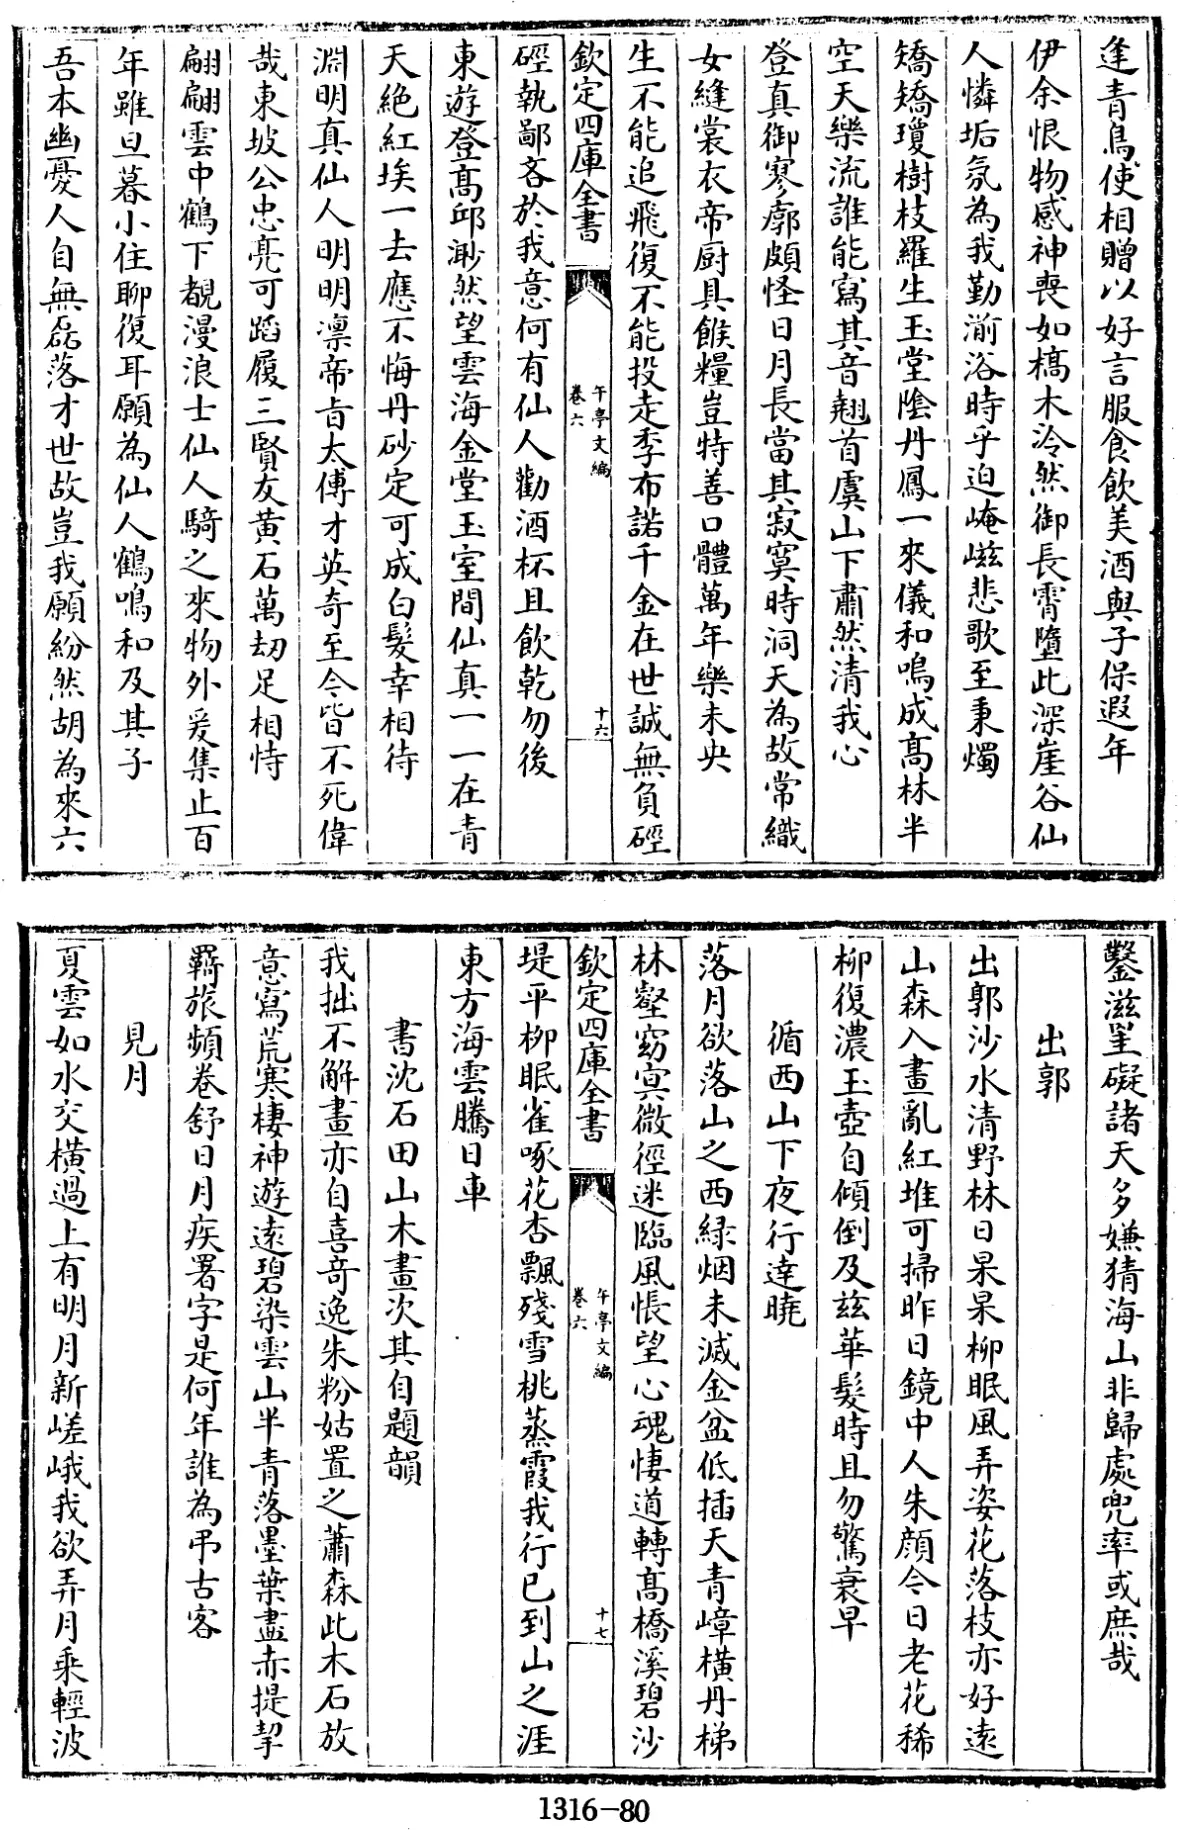 逢青鳥使相贈以好言服食飲美酒與子保遐年
伊余恨物感神喪如槁木泠然御長霄墮此深崖谷仙
人憐垢氛為我勤湔浴時乎迫崦嵫悲歌至秉燭
矯矯瓊樹枝羅生玉堂陰丹鳳一來儀和鳴成高林半
空天樂流誰能寫其音翹首虞山下肅然清我心
登真御寥廓頗怪日月長當其寂寞時洞天為故常織
女縫裳衣帝厨具餱糧豈特善口體萬年樂未央
生不能追飛復不能投走季布諾千金在世誠無負硜
欽定四庫全書
午亭文編
卷六
十六
硜執鄙吝於我意何有仙人勸酒杯且飲乾勿後
東遊登高邱渺然望雲海金堂玉室間仙真一一在青
天絶紅埃一去應不悔丹砂定可成白髮幸相待
淵明真仙人明明凜帝㫖太傅才英奇至今皆不死偉
哉東坡公忠亮可蹈履三賢友黄石萬刼足相恃
翩翩雲中鶴下覩漫浪士仙人騎之來物外爰集止百
年雖旦暮小住聊復耳願為仙人鶴鳴和及其子
吾本幽憂人自無磊落才世故豈我願紛然胡為來六
鑿滋罣礙諸天多嫌猜海山非歸處兜率或庶哉
出郭
出郭沙水清野林日杲杲柳眠風弄姿花落枝亦好遠
山森入畫亂紅堆可掃昨日鏡中人朱顔今日老花稀
柳復濃玉壺自傾倒及兹華髮時且勿驚衰早
循西山下夜行達曉
落月欲落山之西緑烟未滅金盆低插天青嶂横丹梯
林壑窈㝠微徑迷臨風悵望心魂悽道轉高橋溪碧沙
欽定四庫全書
午亭文編
卷六
十七
堤平柳眠雀啄花杏飄殘雪桃蒸霞我行已到山之涯
東方海雲騰日車
書沈石田山木畫次其自題韻
我拙不解畫亦自喜奇逸朱粉姑置之蕭森此木石放
意寫荒寒棲神遊遠碧染雲山半青落墨葉盡赤提挈
羇旅頻卷舒日月疾署字是何年誰為弔古客
見月
夏雲如水交横過上有明月新嵯峨我欲弄月乘輕波
1316-80